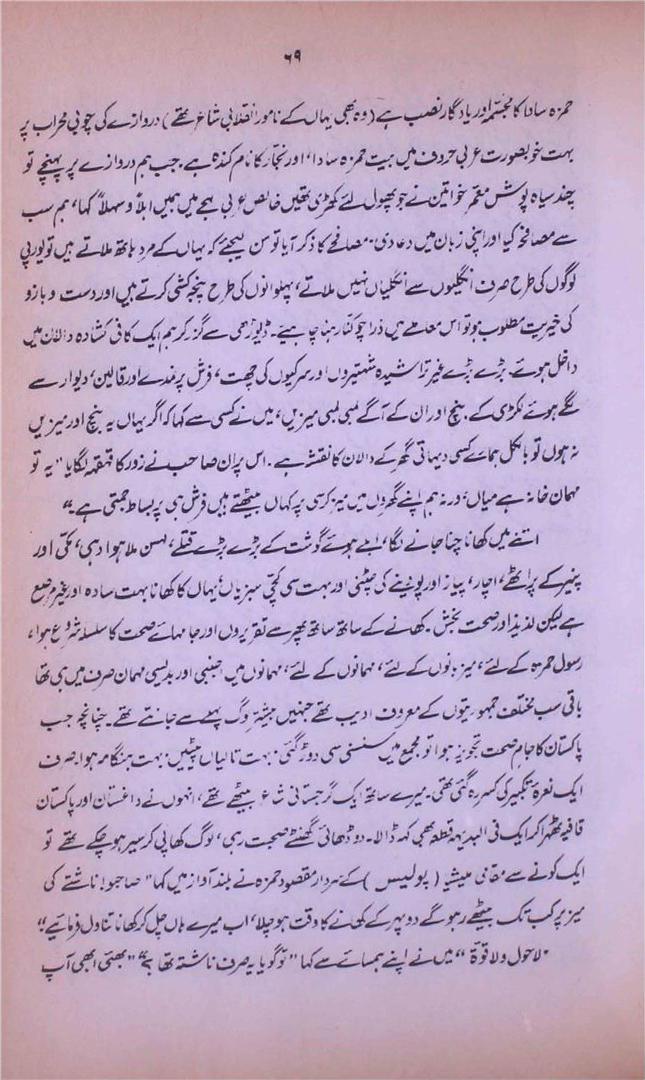 ۶۹
حمزہ سادا کا مجسمہ اور یادگار نصب ہے (وہ بھی یہاں کے نامور انقلابی شاعر تھے) دروازے کی چوبی محراب پر
بہت خوبصورت عربی حروف میں بیت حمزہ سادا، اور نجار کا نام کندہ ہے، جب ہم دروازے پر پہنچے تو
چند سیاہ پوش معمر خواتین نے جو پھول لئے کھڑی تھیں خالص عربی لہجے میں ہمیں اہلاً وسہلاً کہا، ہم سب
سے مصافحہ کیا اور اپنی زبان میں دعا دی۔ مصافحے کا ذکر آیا تو سن لیجئے کہ یہاں کے مرد ہاتھ ملاتے ہیں تو یورپی
لوگوں کی طرح صرف انگلیوں سے انگلیاں نہیں ملاتے، پہلوانوں کی طرح پنجہ کشی کرتے ہیں اور دست و بازو
کی خیریت مطلوب ہو تو اس معاملے میں ذرا چوکنا رہنا چاہئیے۔ ڈیوڑھی سے گزر کر ہم ایک کافی کشادہ دالان میں
داخل ہوئے۔ بڑے بڑے غیر تراشیدہ شہتیروں اور سرکیوں کی چھت، فرش پر نمدے اور قالین، دیوار سے
لگے ہوئے لکڑی کے بنچ اور ان کے آگے لمبی لمبی میزیں، میں نے کسی سے کہا کہ اگر یہاں یہ بنچ اور میزیں
نہ ہوں تو بالکل ہمارے کسی دیہاتی گھر کے دالان کا نقشہ ہے۔ اس پر ان صاحب نے زور کا قہقہہ لگایا "یہ تو
مہمان خانہ ہے میاں، ورنہ ہم اپنے گھروں میں میز کرسی پر کہاں بیٹھتے ہیں فرش ہی پر بساط جمتی ہے۔"
اتنے میں کھانا چنا جانے لگا، ابلے ہوئے گوشت کے بڑے بڑے قتلے، لہسن ملا ہوا دہی، مکئی اور
پنیر کے پراٹھے، اچار، پیاز اور پودینے کی چٹنی اور بہت سی کچی سبزیاں، یہاں کا کھانا بہت سادہ اور غیر مرصع
ہے لیکن لذیذ اور صحت بخش۔ کھانے کے ساتھ ساتھ پھر سے تقریروں اور جامہائے صحت کا سلسلہ شروع ہوا،
رسول حمزہ کے لئے، میزبانوں کے لئے، مہمانوں کے لئے، مہمانوں میں اجنبی اور بدیسی مہمان صرف میں ہی تھا
باقی سب مختلف جمہوریتوں کے معروف ادیب تھے جنہیں بیشتر لوگ پہلے سے جانتے تھے۔ چنانچہ جب
پاکستان کا جام صحت تجویز ہوا تو مجمع میں سنسنی سی دوڑ گئی۔ بہت تالیاں پیٹیں بہت ہنگامہ ہوا۔ صرف
ایک نعرۂ تکبیر کی کسر رہ گئی تھی۔ میرے ساتھ ایک گرجستانی شاعر بیٹھے تھے، انہوں نے داغستان اور پاکستان
قافیہ ٹھہرا کر ایک فی البدیہہ قطعہ بھی کہہ ڈالا۔ دو ڈھائی گھنٹے صحبت رہی، لوگ کھا پی کر سیر ہو چکے تھے تو
ایک کونے سے مقامی میشیا (پولیس) کے سردار مقصود حمزہ نے بلند آواز میں کہا "صاحبو! ناشتے کی
میز پر کب تک بیٹھے رہو گے دوپہر کے کھانے کا وقت ہو چلا، اب میرے ہاں چل کر کھانا تناول فرمائیے"
"لاحول ولا قوۃ" میں نے اپنے ہمسائے سے کہا "تو گویا یہ صرف ناشتہ تھا؟" "بھئی ابھی آپ